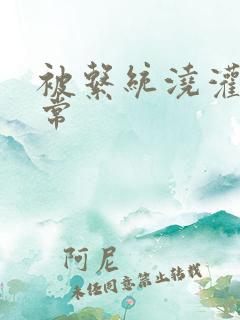 被繫統澆灌
常
阿尼
未经同意禁止转载